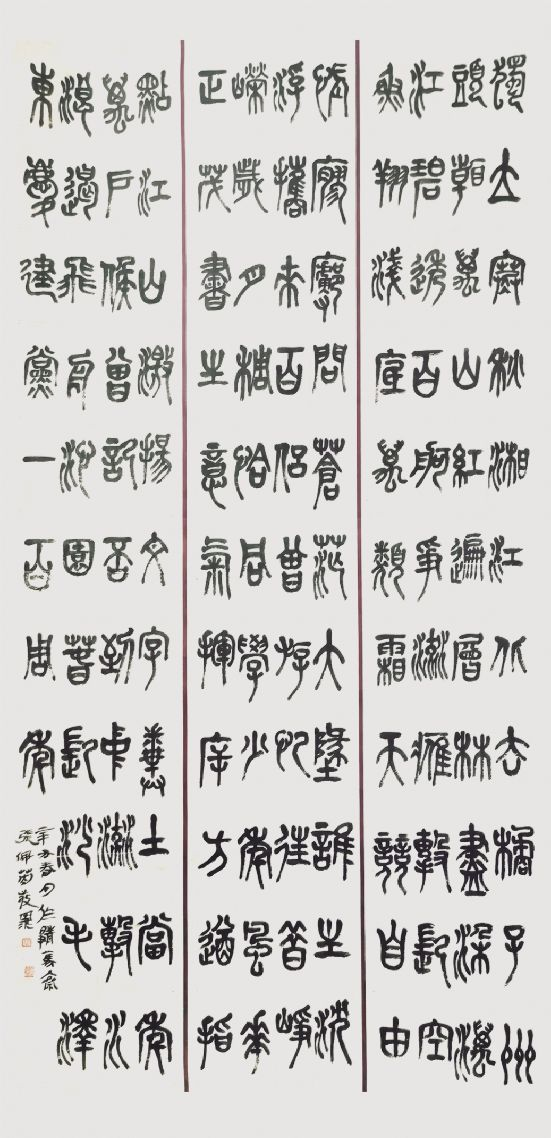 獨立寒秋湘江北去橘子州
頭看萬山紅遍層林盡染漫
江碧透百舸爭流鷹擊長空
魚翔淺底萬類霜天競自由
悵寥廓問蒼茫大地誰主沉
浮攜來百侶曾游憶往昔崢
嶸歲月稠恰同學少年風華
正茂書生意氣揮斥方遒指
點江山激揚文字糞土當年
萬戶侯曾記否到中流擊水
浪遏飛舟沁園春長沙毛澤
東慶建黨一百周年
辛丑春月